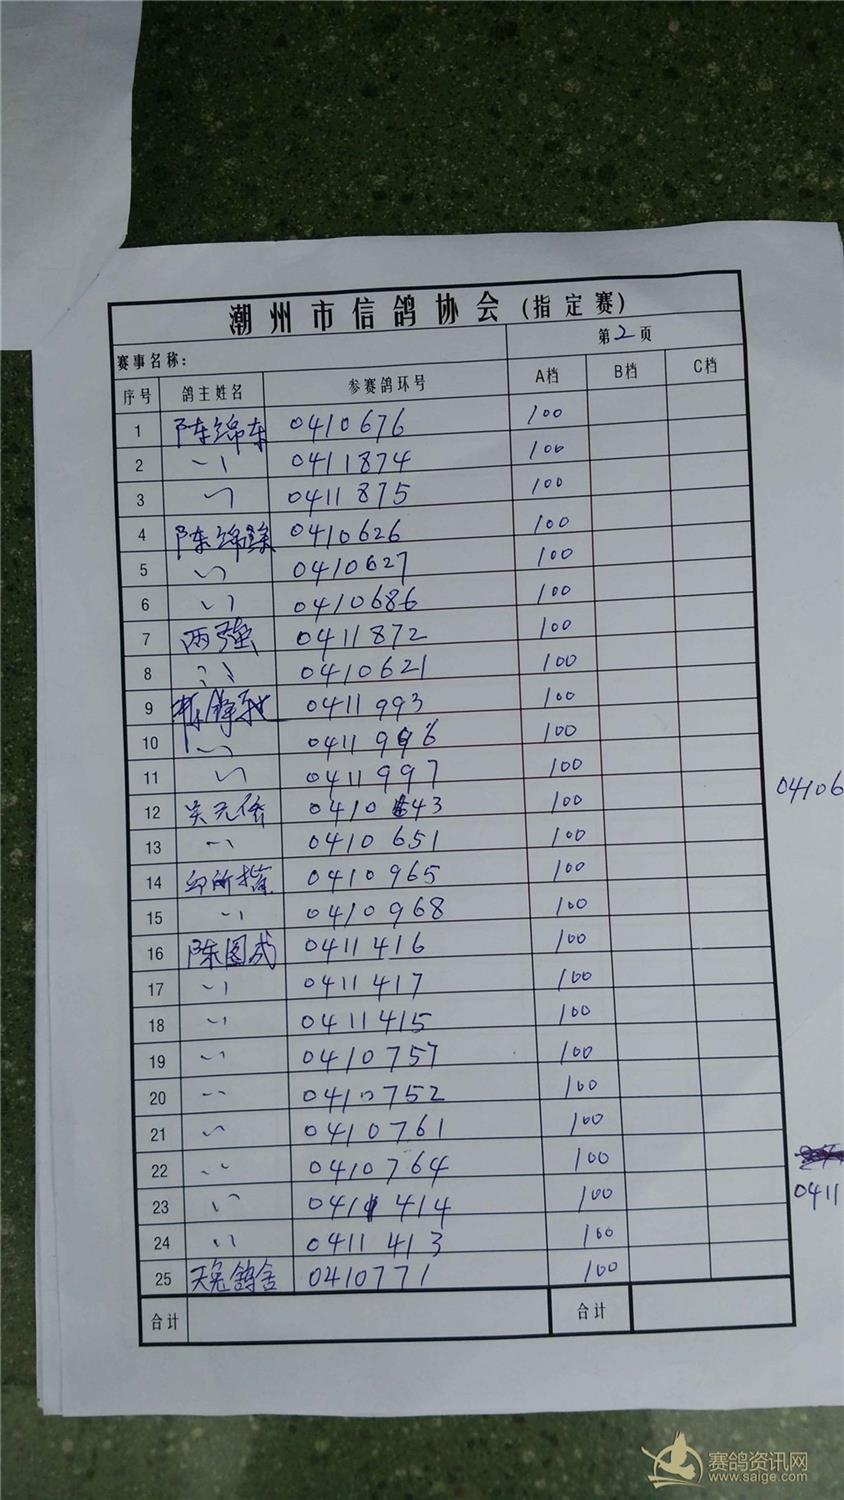 潮州市信鸽协会(指定赛)
赛事名称: 第2页
序号 鸽主姓名 参赛鸽环号 A档 B档 C档
1 陈绵东 0410676 100
2 〃 0411874 100
3 〃 0411875 100
4 陈绵 0410626 100
5 〃 0410627 100
6 〃 0410686 100
7 两强 0411872 100
8 〃 0410621 100
9 0411993 100
10 〃 0411996 100
11 〃 0411997 100
12 吴元侨 0410643 100
13 〃 0410651 100
14 0410965 100
15 〃 0410968 100
16 陈图武 0411416 100
17 〃 0411417 100
18 〃 0411415 100
19 〃 0410757 100
20 〃 0410752 100
21 〃 0410761 100
22 〃 0410764 100
23 〃 0411414 100
24 〃 0411413 100
25 天兔鸽舍 0410771 100
合计 合计
04106
0411
赛鸽资讯网
www.saige.com